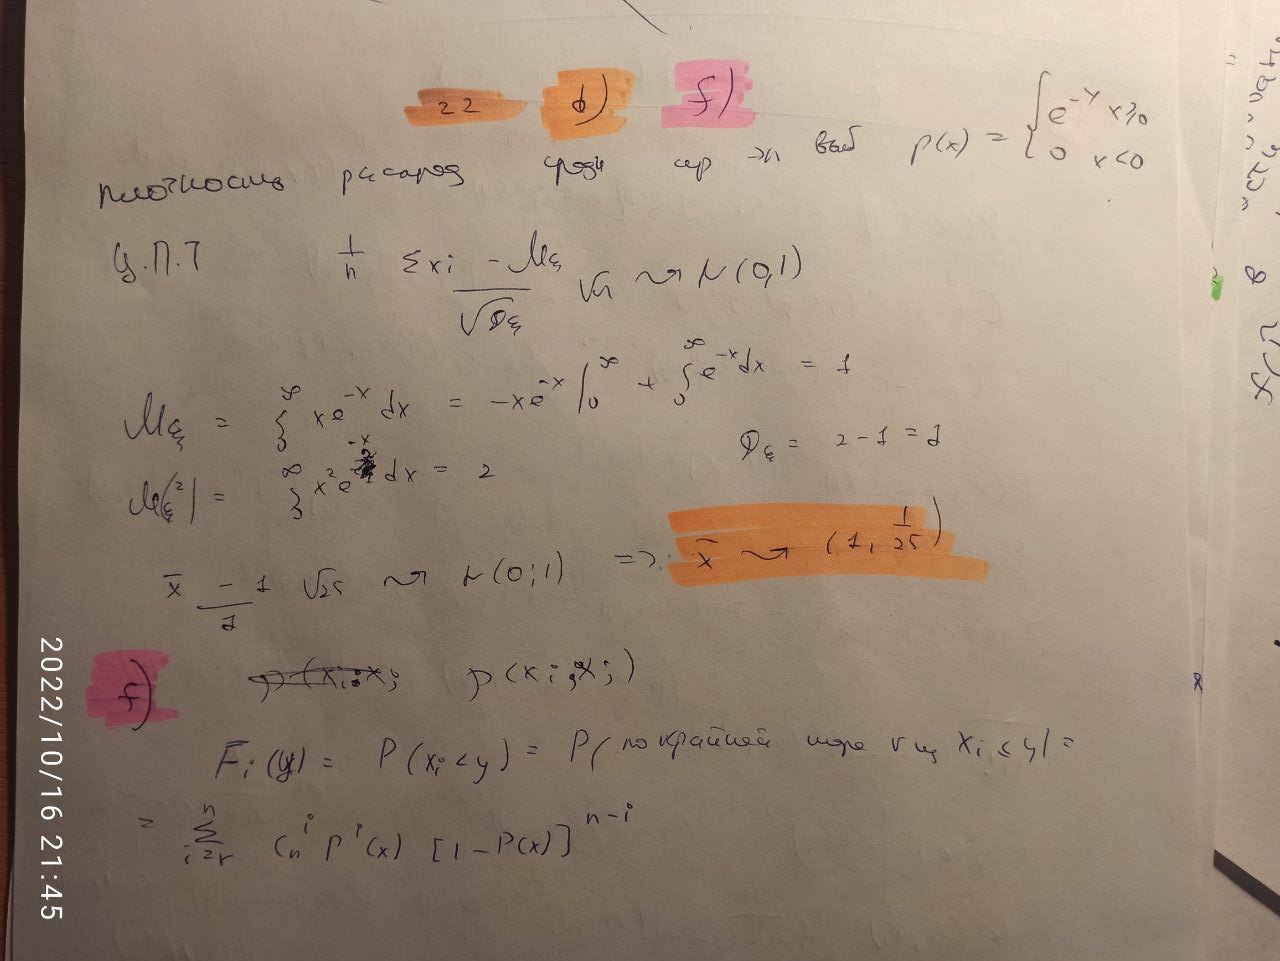 22 b) f)
плотность распред средн ар выб p(x) = { e^-x x≥0
0 x<0
Ц.П.Т 1/n Σxi - Mξ / √Dξ √n ⇝ N(0,1)
Mξ = ∫₀^∞ x e^-x dx = -xe^-x |₀^∞ + ∫₀^∞ e^-x dx = 1
M(ξ²) = ∫₀^∞ x² e^-x dx = 2 Dξ = 2-1 = 1
x̄ - 1 / 1 √25 ⇝ N(0;1) => x̄ ⇝ (1, 1/25)
f) p(xi; xj)
Fi(y) = P(xi < y) = P(по крайней мере r из xi ≤ y) =
= Σ_{i=r}^n C_n^i P^i(x) [1-P(x)]^{n-i}
2022/10/16 21:45